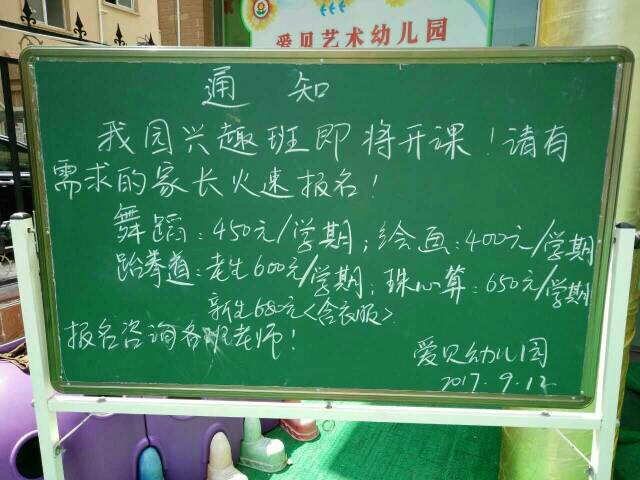 爱贝艺术幼儿园
通知
我园兴趣班即将开课！请有
需求的家长火速报名！
舞蹈：450元/学期；绘画：400元/学期
跆拳道：老生600元/学期；珠心算：650元/学期
新生680元<含衣服>
报名咨询各班老师！
爱贝幼儿园
2017.9.12